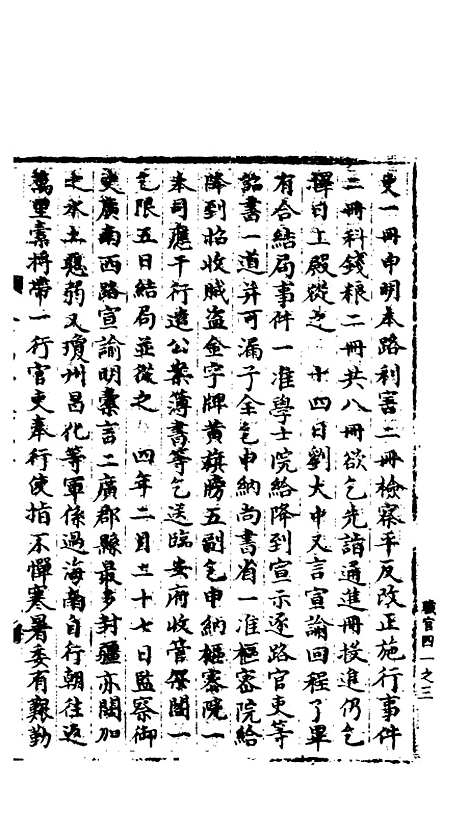 吏一冊申明本路利害二冊檢察平反改正施行事件
二冊科錢粮二冊共八冊欲乞先詣通進冊投進仍乞
擇日上殿從之 十四日劉大中又言宣諭回程了畢
有合結局事件一准學士院給降到宣示逐路官吏等
詔書一道并可漏子全乞申納尚書省一准樞密院給
降到招收賊盗金字牌黄旗牓五副乞申納樞密院一
本司應干行遣公案薄書等乞送臨安府收管架閣一
乞限五日結局並從之 四年二月二十七日監察御
史廣南西路宣諭明橐言二廣郡縣最多封疆亦闊加
之水土惡弱又瓊州昌化等軍係過海南自行朝往返
萬里橐將帶一行官吏奉行使指不憚寒暑委有艱勤
職官四一之三